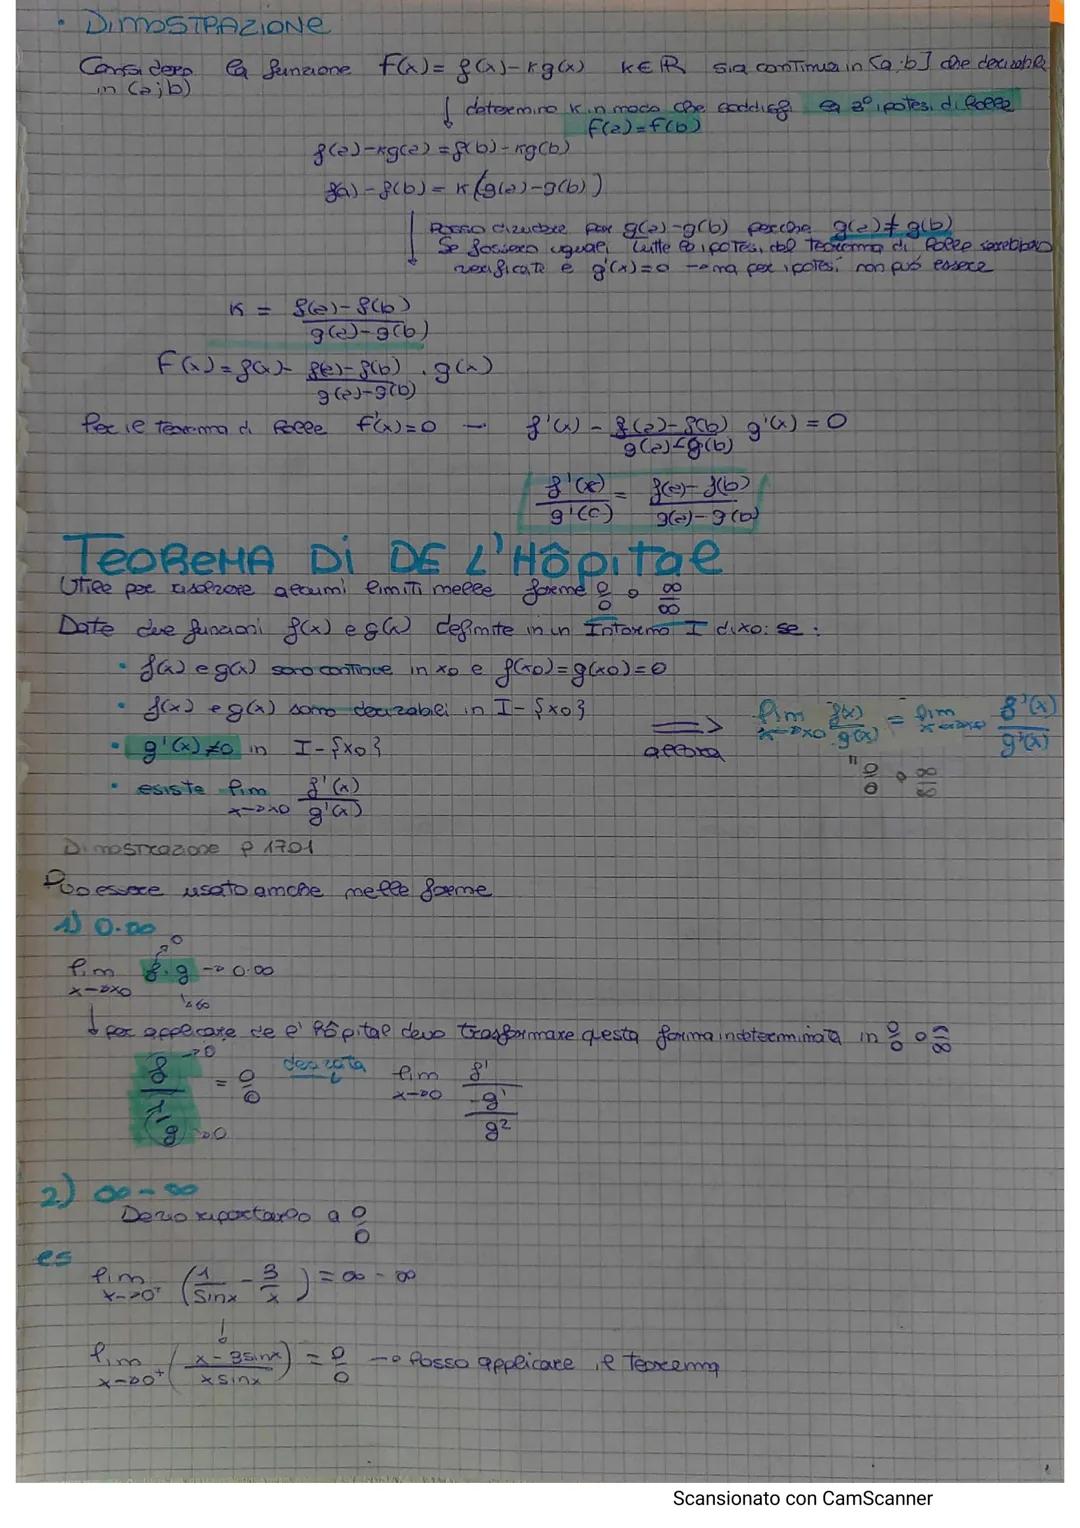 • DIMOSTRAZIONE
Considero la funzione F(x) = f(x) - kg(x) k∈R sia continua in [a;b] che derivabile
in (a;b)
↓ determino k in modo che soddisfi la 3° ipotesi di Rolle
F(a) = F(b)
f(a) - kg(a) = f(b) - kg(b)
f(a) - f(b) = k(g(a) - g(b))
Posso dividere per g(a) - g(b) perche g(a) ≠ g(b)
Se fossero uguali, tutte le ipotesi del teorema di Rolle sarebbero
verificate e g'(x) = 0 → ma per ipotesi non può essere
k = f(a) - f(b) / g(a) - g(b)
F(x) = f(x) - f(a) - f(b) / g(a) - g(b) · g(x)
Per il teorema di Rolle F'(x) = 0 → f'(x) - f(a) - f(b) / g(a) - g(b) g'(x) = 0
f'(c) / g'(c) = f(a) - f(b) / g(a) - g(b)
TEOREMA Di DE L'Hôpital
Utile per risolvere alcuni limiti nelle forme 0/0 o ∞/∞
Date due funzioni f(x) e g(x) definite in un Intorno I di x0: se :
• f(x) e g(x) sono continue in x0 e f(x0) = g(x0) = 0
• f(x) e g(x) sono derivabili in I - {x0}
• g'(x) ≠ 0 in I - {x0}
• esiste lim x→x0 f'(x) / g'(x)
⟹ allora lim x→x0 f(x) / g(x) = lim x→x0 f'(x) / g'(x)
" 0/0 o ∞/∞
Dimostrazione p 1701
Può essere usato anche nelle forme
1) 0·∞
lim x→x0 f·g → 0·∞
↓ per applicare de l'Hôpital devo trasformare questa forma indeterminata in 0/0 o ∞/∞
f →0 / 1/g →0 = 0/0 derivata lim x→0 f' / -g'/g²
2) ∞ - ∞
Devo riportarlo a 0/0
es
lim x→0⁺ (1/sinx - 3/x) = ∞ - ∞
↓
lim x→0⁺ (x - 3sinx / x sinx) = 0/0 → Posso applicare il teorema
Scansionato con CamScanner